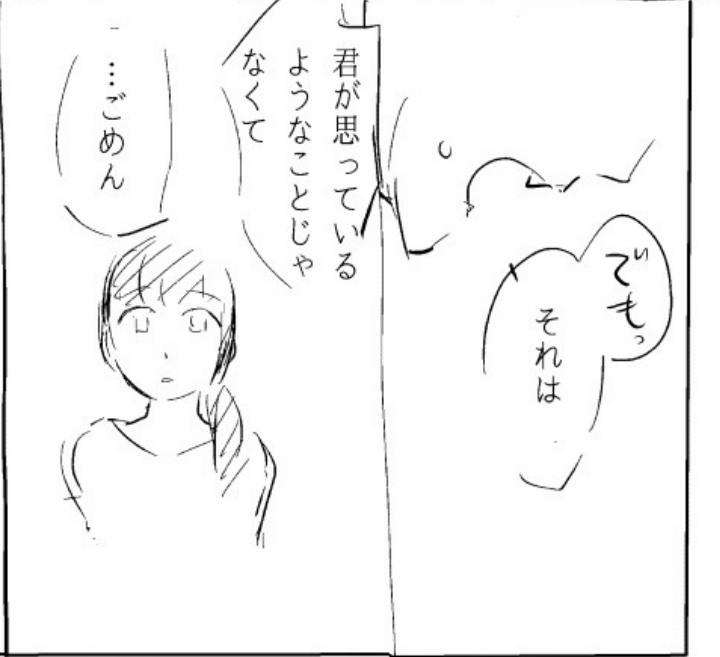 でもっ
それは
君が思っている
ようなことじゃ
なくて
…ごめん